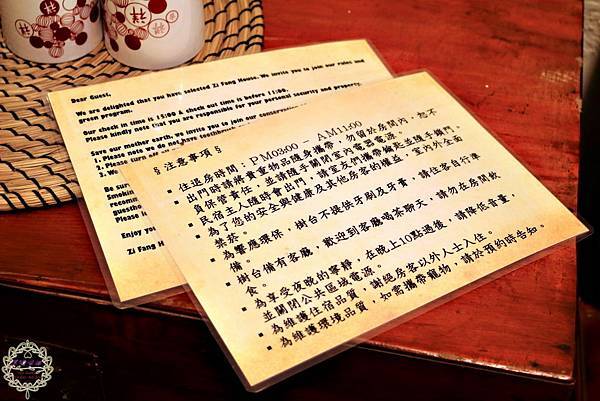 Dear Guest,
We are delighted that you have selected Zi Fang House. We invite you to join our rules and
green program.
Our check in time is 15:00 & check out time is before 11:00.
Please kindly note that you are responsible for your personal security and property.
Save our mother earth, we invite you to join our conservation
1. Please note we do not have toothbrush
2. We turn off all
Be sure
Smoking
recomm
guesthe
please
Enjoy you
Zi Fang H
§ 注意事項 §
▪ 住退房時間：PM03:00 ~ AM11:00
▪ 出門時請將貴重物品隨身攜帶，勿留於房間內，恕不
負保管責任，並請隨手關閉室內電器電源。
▪ 民宿主人隨時會出門，請室友們攜帶鑰匙並隨手鎖門。
▪ 為了您的安全與健康及其他房客的權益，室內外全面
禁菸。
▪ 為響應環保，樹台不提供牙刷及牙膏，請住客自行準
備。
▪ 樹台備有客廳，歡迎到客廳喝茶聊天，請勿在房間飲
食。
▪ 為享受夜晚的寧靜，在晚上10點過後，請降低音量，
並關閉公共區域電源。
▪ 為維護住宿品質，謝絕房客以外人士入住。
▪ 為維護環境品質，如需攜帶寵物，請於預約時告知。